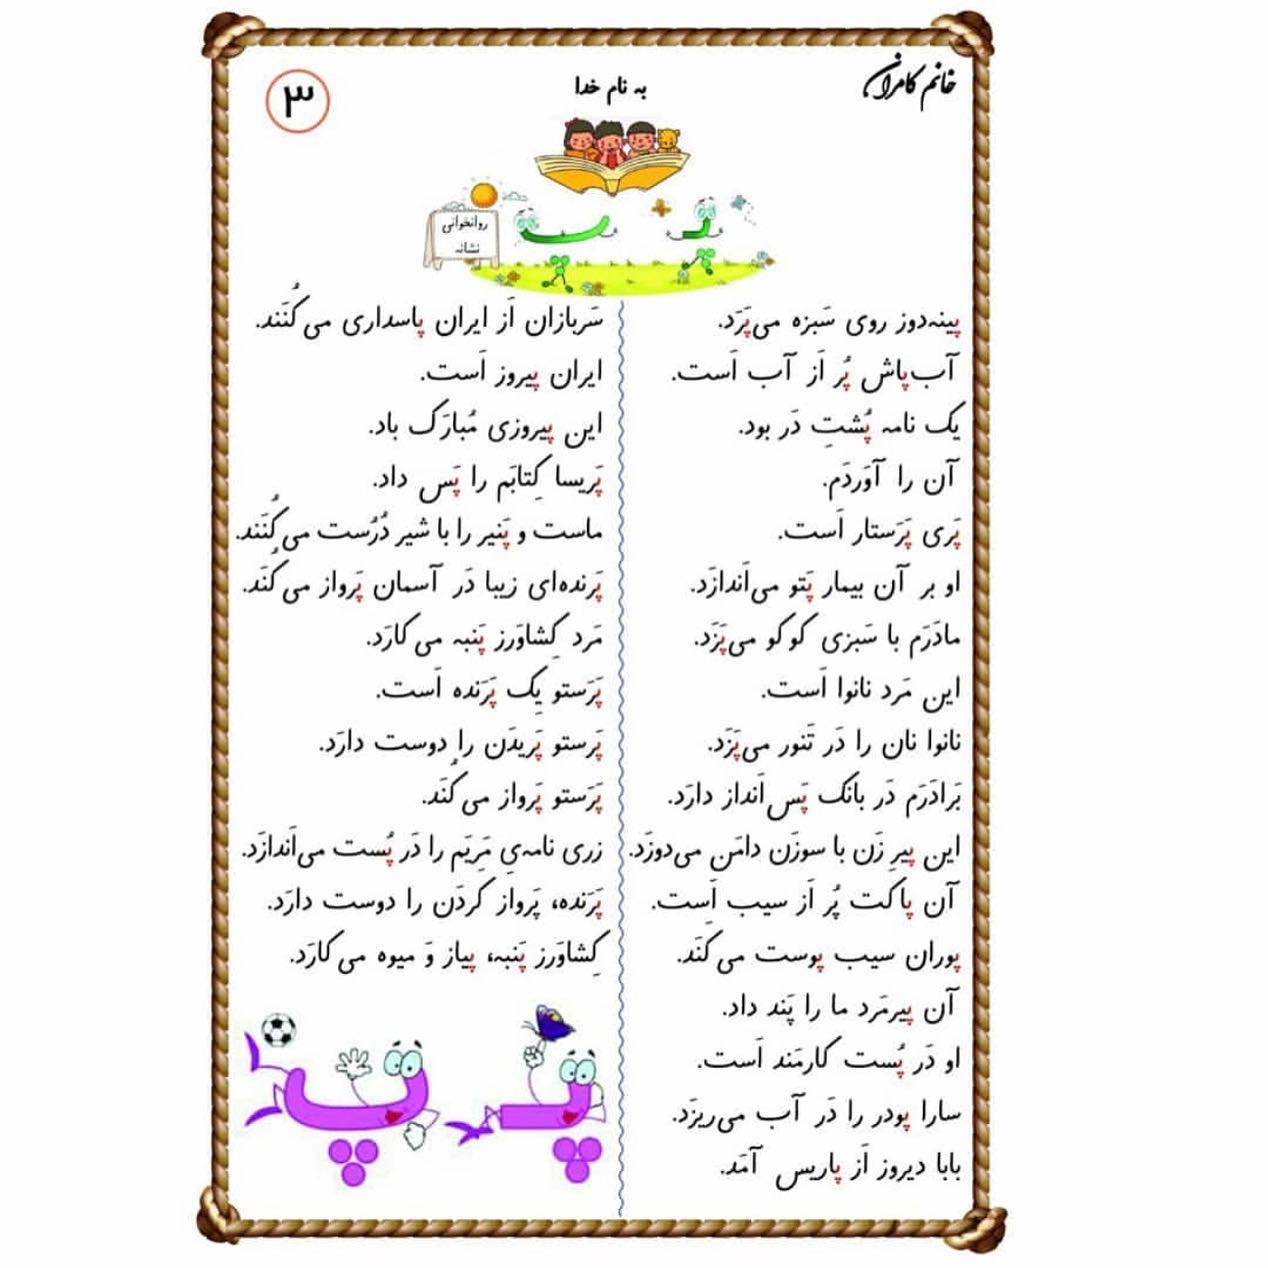 خانم کامران
به نام خدا
۳
روانخوانی
نشانه
پ‍ پ
پینه‌دوز روی سَبزه می‌پَرَد.
آب‌پاش پُر اَز آب اَست.
یک نامه پُشتِ دَر بود.
آن را آوَردَم.
پَری پَرَستار اَست.
او بر آن بیمار پَتو می‌اَندازَد.
مادَرَم با سَبزی کوکو می‌پَزَد.
این مَرد نانوا اَست.
نانوا نان را دَر تَنور می‌پَزَد.
بَرادَرَم دَر بانک پَس‌اَنداز دارَد.
این پیرِ زَن با سوزَن دامَن می‌دوزَد.
آن پاکت پُر اَز سیب اَست.
پوران سیب پوست می‌کَنَد.
آن پیرمَرد ما را پَند داد.
او دَر پُست کارمَند اَست.
سارا پودر را دَر آب می‌ریزَد.
بابا دیروز اَز پاریس آمَد.
سَربازان اَز ایران پاسداری می‌کُنَند.
ایران پیروز اَست.
این پیروزی مُبارَک باد.
پَریسا کِتابَم را پَس داد.
ماست و پَنیر را با شیر دُرُست می‌کُنَند.
پَرَنده‌ای زیبا دَر آسمان پَرواز می‌کُنَد.
مَرد کِشاوَرز پَنبه می‌کارَد.
پَرَستو یِک پَرَنده اَست.
پَرستو پَریدَن را دوست دارَد.
پَرَستو پَرواز می‌کُنَد.
زری نامه‌یِ مَریَم را دَر پُست می‌اَندازَد.
پَرَنده، پَرواز کَردَن را دوست دارَد.
کِشاوَرز پَنبه، پیاز وَ میوه می‌کارَد.
پ‍ پ